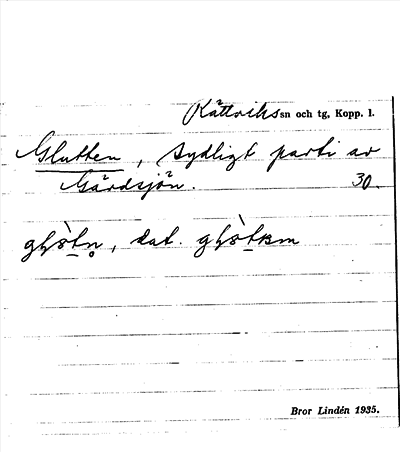 Rättviks sn och tg, Kopp. l.
Glutten, sydligt parti av
Gårdsjön. 30.
dat.
Bror Lindén 1935.